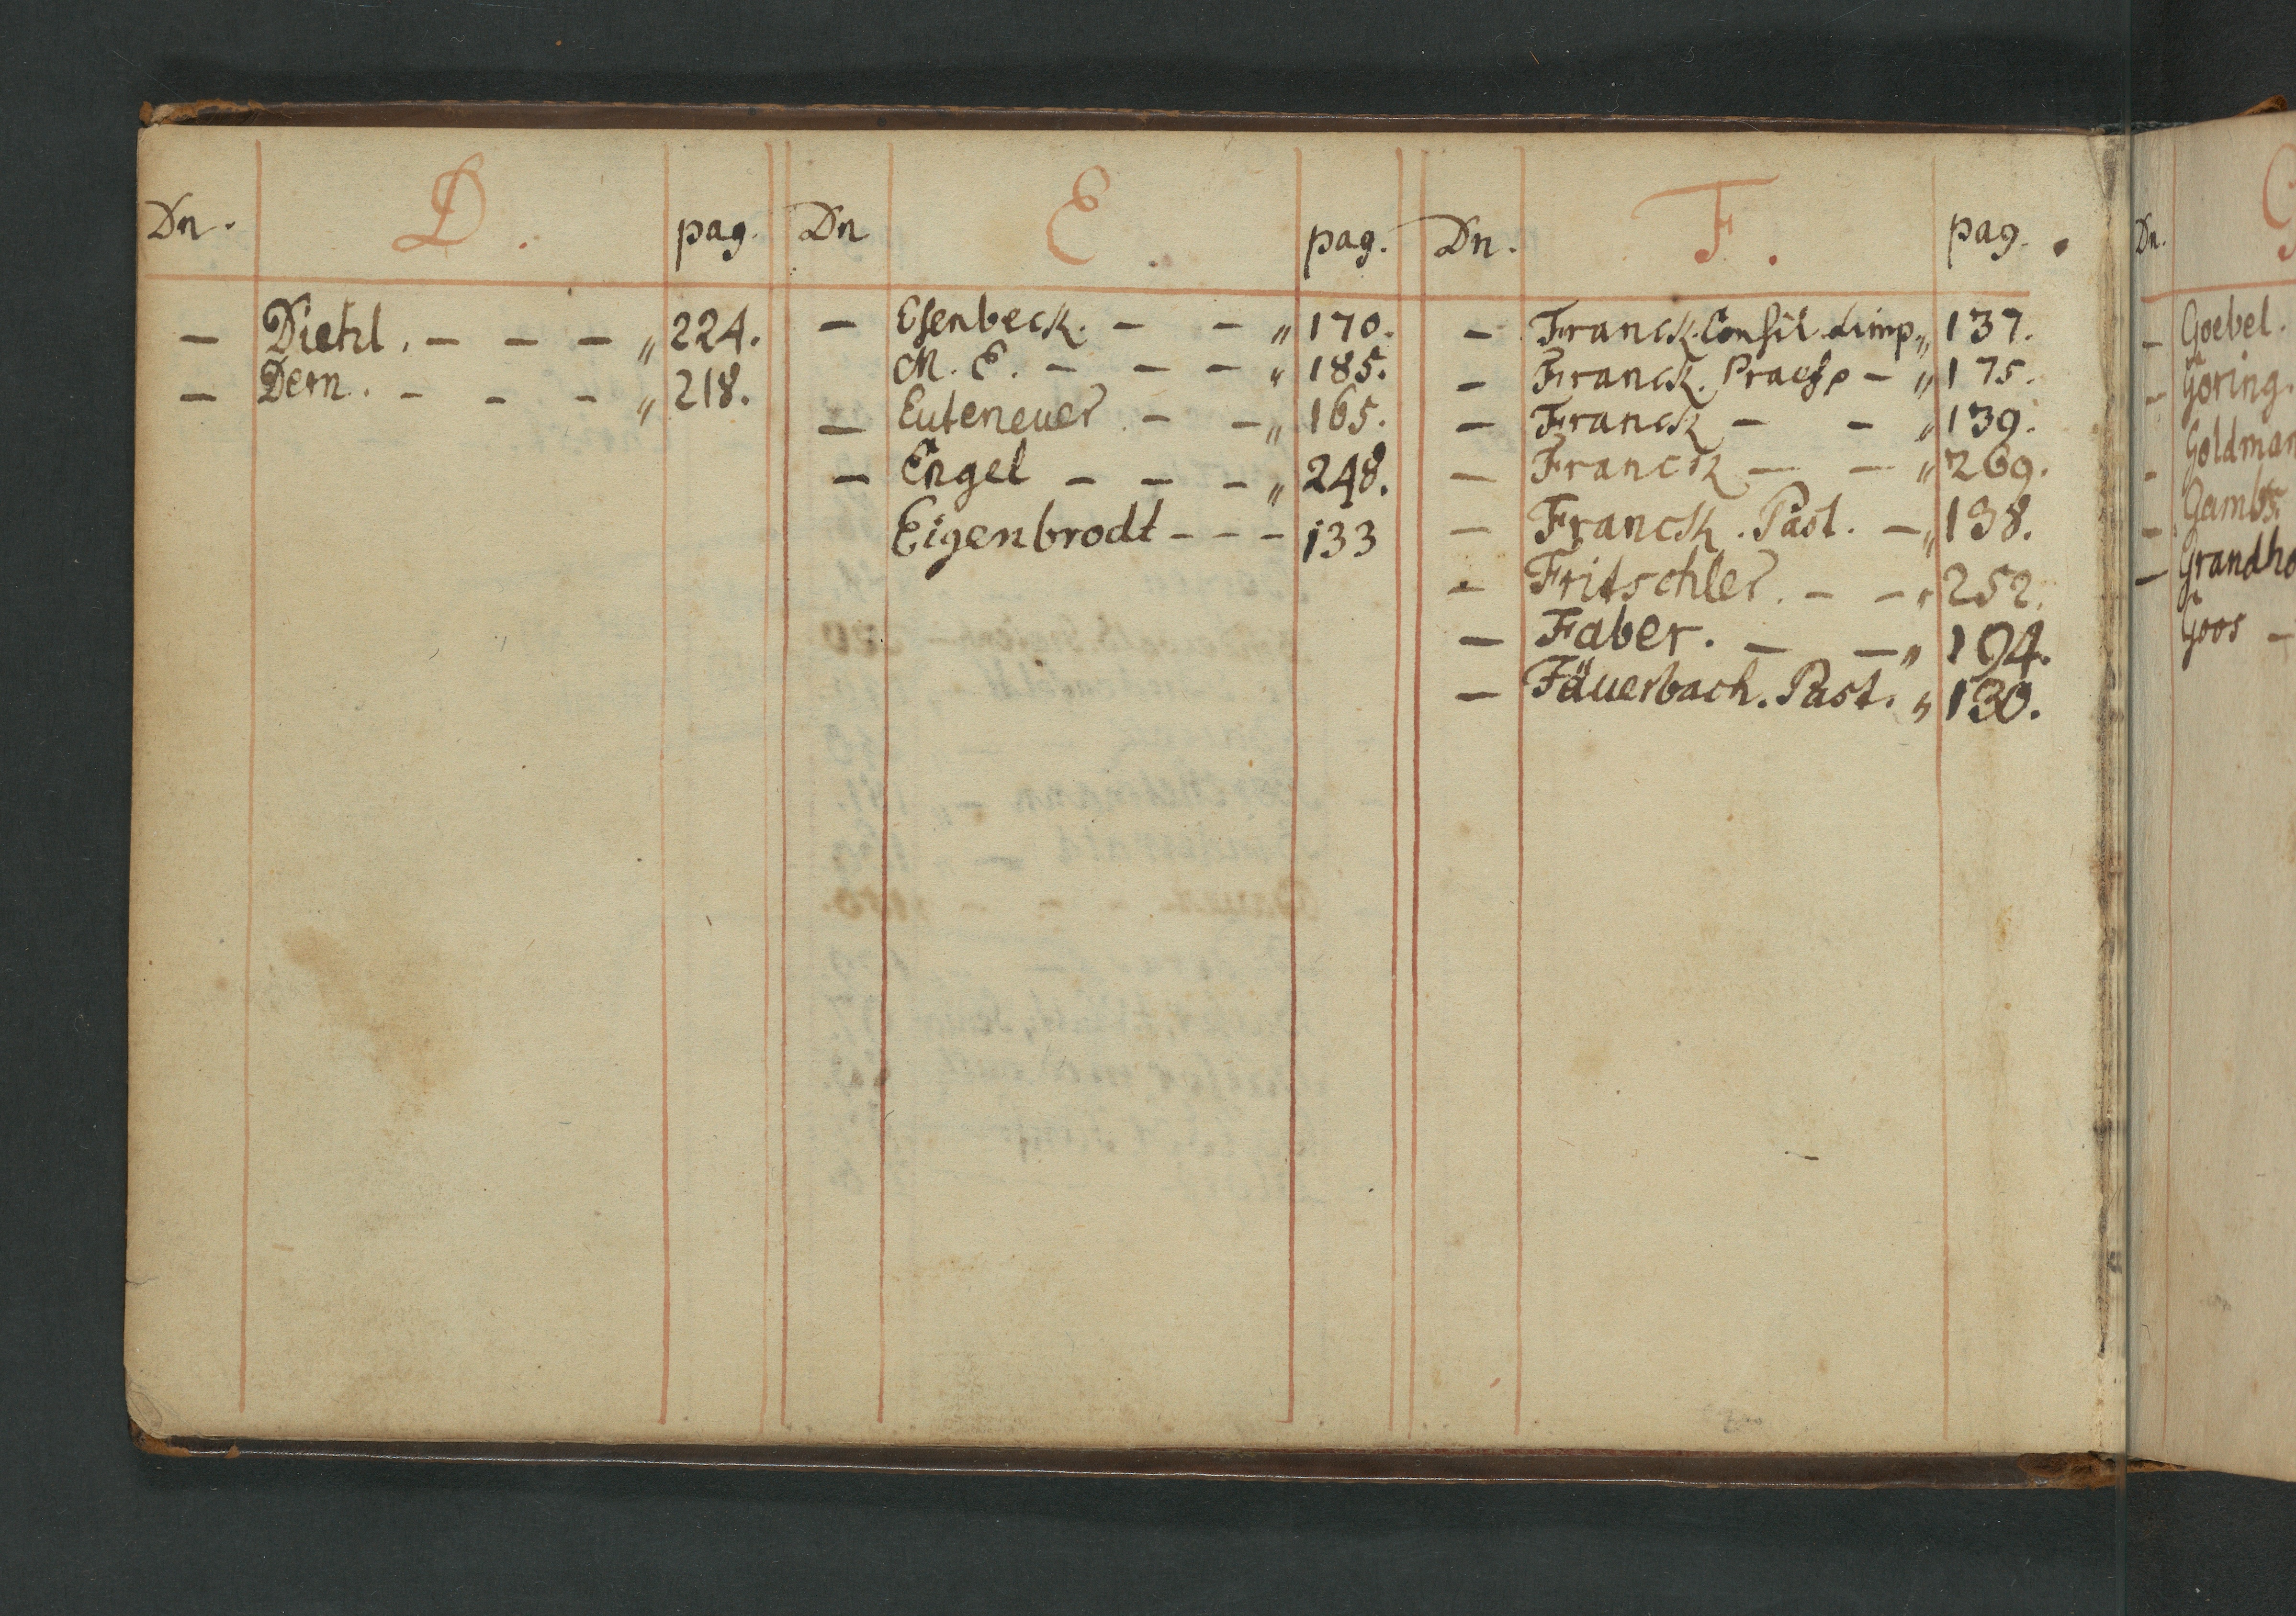 Dn. D. pag.
— Diehl. — — — „ 224.
— Dern. — — — „ 218.
Dn E. pag.
— Esenbeck. — — „ 170.
M. E. — — — „ 185.
— Euteneuer. — — „ 165.
— Engel — — — „ 248.
Eigenbrodt - - - 133
Dn. F. pag.
— Franck. Consil. Limp „ 137.
— Franck. — „ 175.
— Franck — — „ 139.
— Franck — — „ 269.
— Franck. Past. — „ 138.
— Fritschler. — — „ 252.
— Faber. — — „ 194.
— Fäuerbach. Past. „ 130.
Dn. G
— Goebel.
— Göring.
— Goldman
— Gambs
— Grandho
Goos —